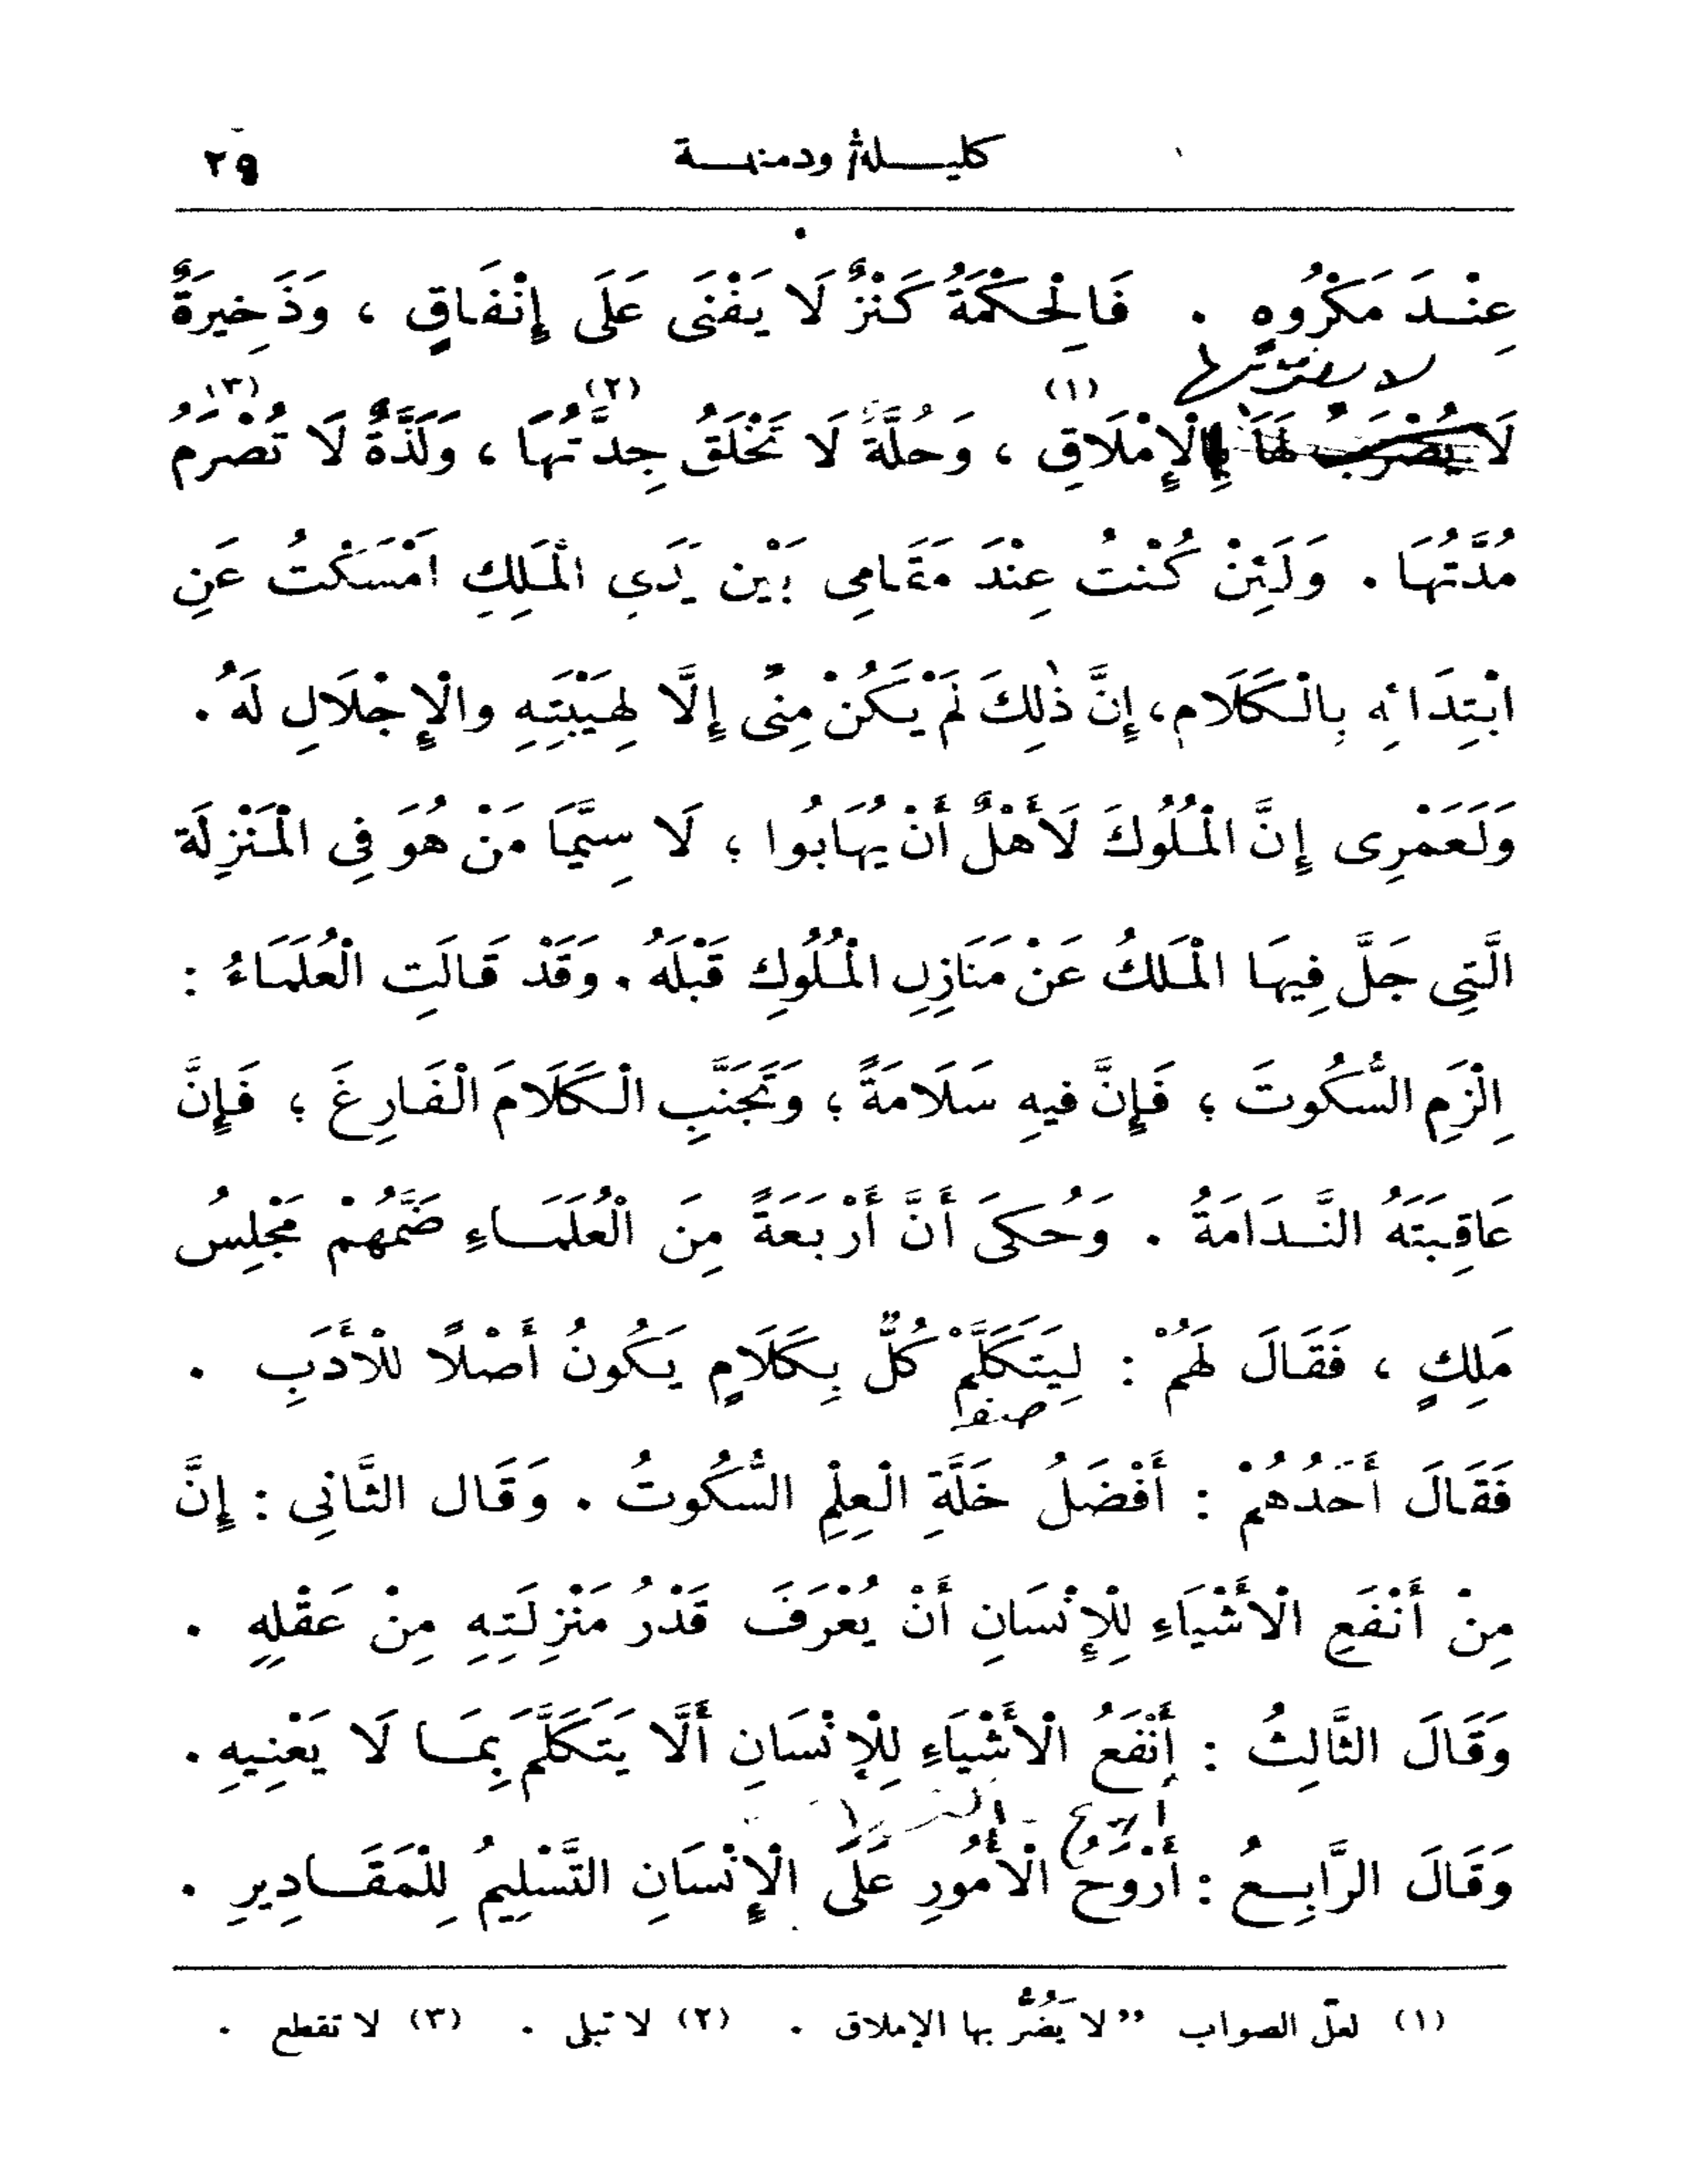 كليـــلة ودمنـــة ٢٩
عِنْـدَ مَكْرُوهٍ . فَالْحِكْمَةُ كَنْزٌ لَا يَفْنَى عَلَى إِنْفَاقٍ ، وَذَخِيرَةٌ
(١) (٢) (٣)
لَا يُضْرَبُ لَهَا بِالْإِمْلَاقِ ، وَحُلَّةٌ لَا تَخْلَقُ جِدَّتُهَا ، وَلَذَّةٌ لَا تُصْرَمُ
مُدَّتُهَا . وَلَئِنْ كُنْتُ عِنْدَ مَقَامِى بَيْن يَدَىِ الْمَلِكِ اَمْسَكْتُ عَنِ
ابْتِدَائِهِ بِالْكَلَام، إِنَّ ذٰلِكَ لَمْ يَكُنْ مِنِّى إِلَّا لِهَيْبَتِهِ والْإِجْلَالِ لَهُ .
وَلَعَمْرِى إِنَّ الْمُلُوكَ لَأَهْلٌ أَنْ يُهَابُوا ؛ لَا سِيَّمَا مَنْ هُوَ فِى الْمَنْزِلَة
الَّتِى جَلَّ فِيهَا الْمَلكُ عَنْ مَنَازِلِ الْمُلُوكِ قَبْلَهُ . وَقَدْ قَالَتِ الْعُلَمَاءُ :
اِلْزَمِ السُّكُوتَ ؛ فَإِنَّ فيهِ سَلَامَةً ؛ وَتَجَنَّبِ الْكَلَامَ الْفَارِغَ ؛ فَإِنَّ
عَاقِبَتَهُ النَّـدَامَةُ . وَحُكىَ أَنَّ أَرْبَعَةً مِنَ الْعُلَمَـاءِ ضَمَّهُمْ مَجْلِسُ
مَلِكٍ ، فَقَالَ لَهُمْ : لِيَتَكَلَّمْ كُلٌّ بِكَلَامٍ يَكُونُ أَصْلًا للْأَدَبِ .
فَقَالَ أَحَدُهُمْ : أَفْضَلُ خَلَّةِ الْعِلْمِ السُّكُوتُ . وَقَال الثَّانِى : إِنَّ
مِنْ أَنْفَعِ الْأَشْيَاءِ لِلْإِنْسَانِ أَنْ يُعْرَفَ قَدْرُ مَنْزِلَتِهِ مِنْ عَقْلِهِ .
وَقَالَ الثَّالِثُ : أَنْفَعُ الْأَشْيَاءِ لِلْإِنْسَانِ أَلَّا يَتَكَلَّمَ بِمَـا لَا يَعْنِيهِ .
وَقَالَ الرَّابِـعُ : أَرْوَحُ الْأُمُورِ عَلَى الْإِنْسَانِ التَّسْلِيمُ لِلْمَقَـادِيرِ .
(١) لعلّ الصواب ” لا يَضُرُّ بها الإملاق . (٢) لا تبلى . (٣) لا تقطع .